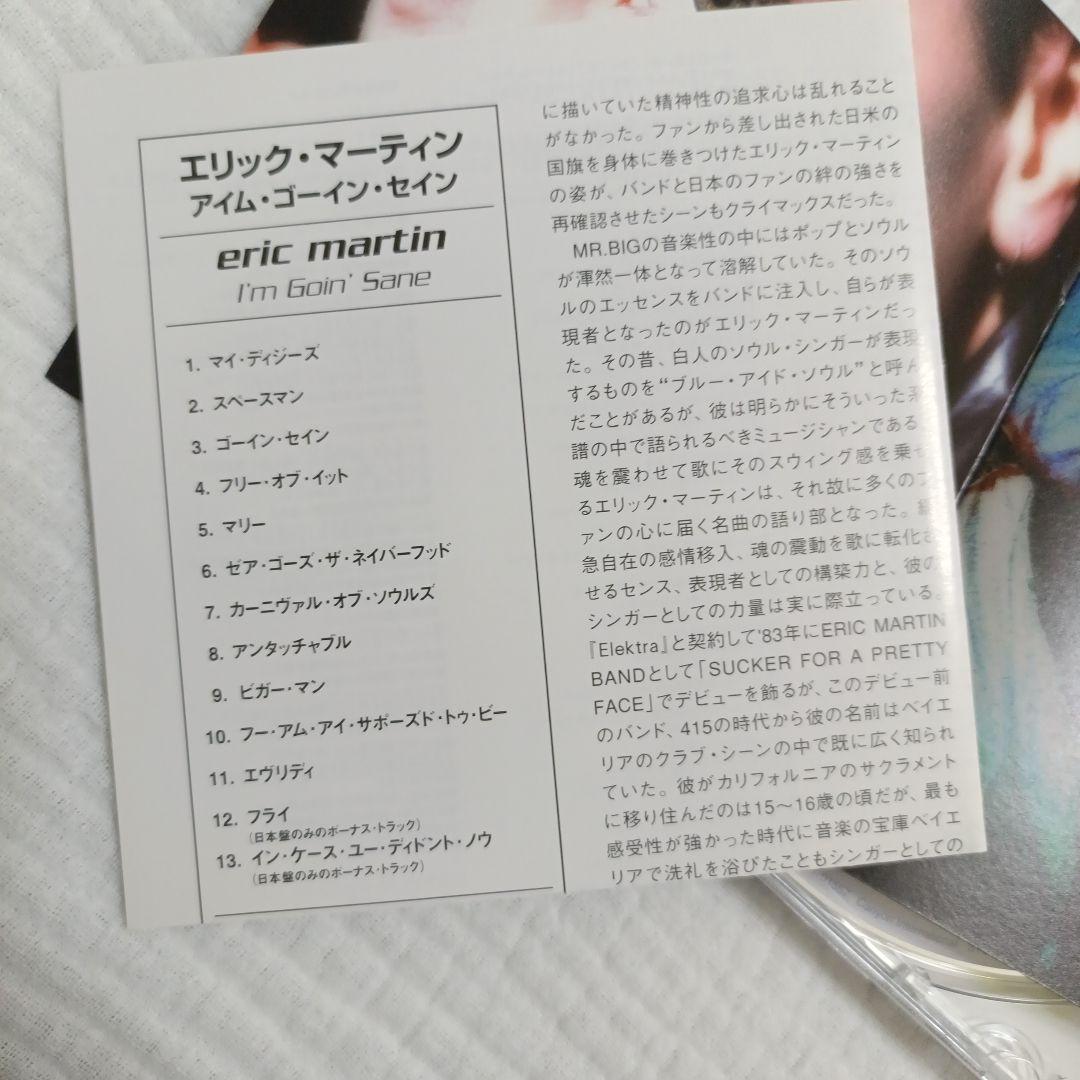 エリック・マーティン
アイム・ゴーイン・セイン
eric martin
I'm Goin' Sane
1. マイ・ディジーズ
2. スペースマン
3. ゴーイン・セイン
4. フリー・オブ・イット
5. マリー
6. ゼア・ゴーズ・ザ・ネイバーフッド
7. カーニヴァル・オブ・ソウルズ
8. アンタッチャブル
9. ビガー・マン
10. フー・アム・アイ・サポーズド・トゥ・ビー
11. エヴリディ
12. フライ
(日本盤のみのボーナス・トラック)
13. イン・ケース・ユー・ディドント・ノウ
(日本盤のみのボーナス・トラック)
に描いていた精神性の追求心は乱れること
がなかった。ファンから差し出された日米の
国旗を身体に巻きつけたエリック・マーティン
の姿が、バンドと日本のファンの絆の強さを
再確認させたシーンもクライマックスだった。
MR.BIGの音楽性の中にはポップとソウル
が渾然一体となって溶解していた。そのソウ
ルのエッセンスをバンドに注入し、自らが表
現者となったのがエリック・マーティンだっ
た。その昔、白人のソウル・シンガーが表現
するものを“ブルー・アイド・ソウル”と呼ん
だことがあるが、彼は明らかにそういった系
譜の中で語られるべきミュージシャンである
魂を震わせて歌にそのスウィング感を乗せ
るエリック・マーティンは、それ故に多くのフ
ァンの心に届く名曲の語り部となった。
急自在の感情移入、魂の震動を歌に転化さ
せるセンス、表現者としての構築力と、彼の
シンガーとしての力量は実に際立っている。
『Elektra』と契約して'83年にERIC MARTIN
BANDとして「SUCKER FOR A PRETTY
FACE」でデビューを飾るが、このデビュー前
のバンド、415の時代から彼の名前はベイエ
リアのクラブ・シーンの中で既に広く知られ
ていた。彼がカリフォルニアのサクラメント
に移り住んだのは15〜16歳の頃だが、最も
感受性が強かった時代に音楽の宝庫ベイエ
リアで洗礼を浴びたこともシンガーとしての